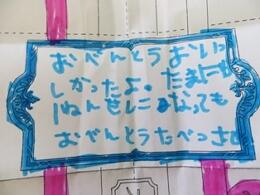 おべんとうおいっ
しかったよ。たまには
1ねんせいになっても
おべんとうたべっさせ